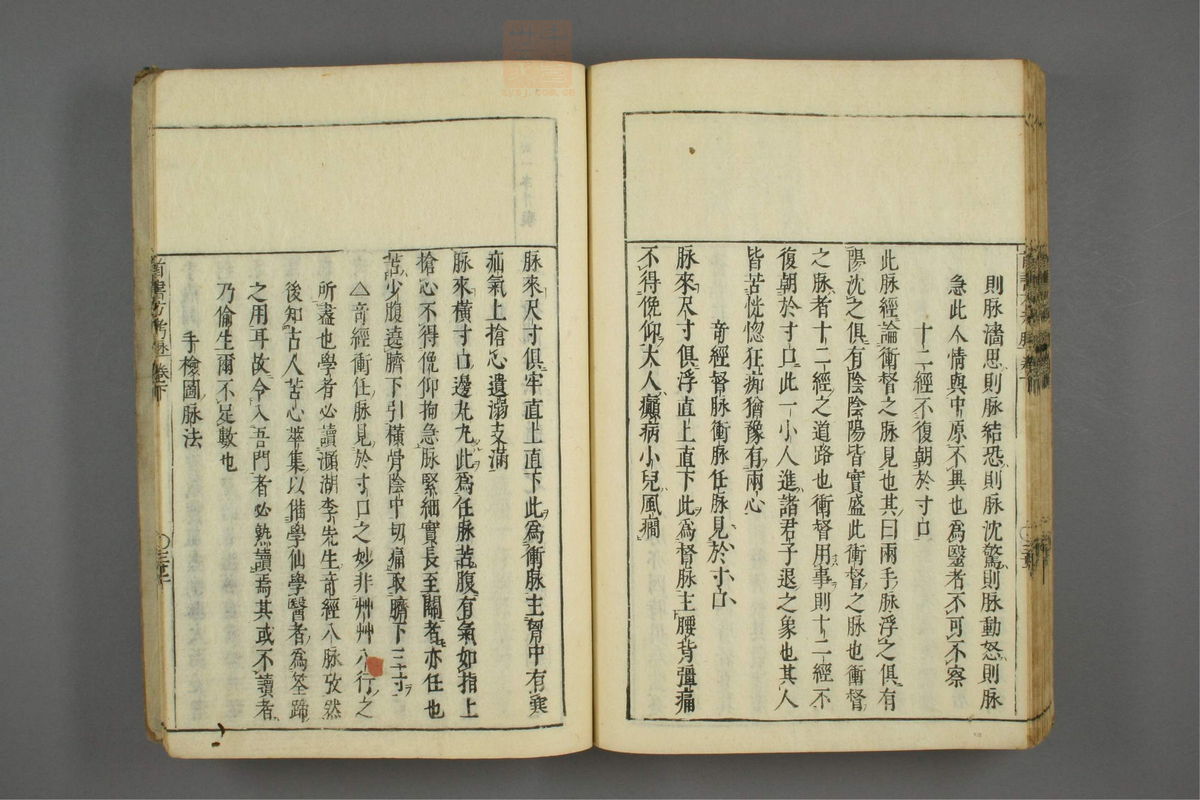 則脉濇思則脉結恐則脉沈驚則脉動怒則脉
急此人情與中原不異也為毉者不可不察
十二經不復朝於寸口
此脉經論衝督之脉見也其曰兩手脉浮之俱有
陽沈之俱有陰陰陽皆實盛此衝督之脉也衝督
之脉者十二經之道路也衝督用事則十二經不
復朝於寸口此一小人進諸君子退之象也其人
皆苦恍惚狂痴猶豫有兩心
竒經督脉衝脉任脉見於寸口
脉來尺寸俱浮直上直下此為督脉主腰背彊痛
不得俛仰大人癲病小兒風癎
脉來尺寸俱牢直上直下此為衝脉主胷中有寒
疝氣上搶心遺溺支滿
脉來横寸口邊丸丸此為任脉苦腹有氣如指上
搶心不得俛仰拘急脉緊細實長至關者亦任也
苦少腹遶臍下引横骨陰中切痛取臍下三寸
△竒經衝任脉見於寸口之妙非艸艸八行之
所盡也學者必讀瀕湖李先生竒經八脉攷然
後知古人苦心萃集以偹學仙學醫者為筌蹄
之用耳故今入吾門者必熟讀焉其或不讀者
乃偷生爾不足數也
手檢圖脉法
卷下